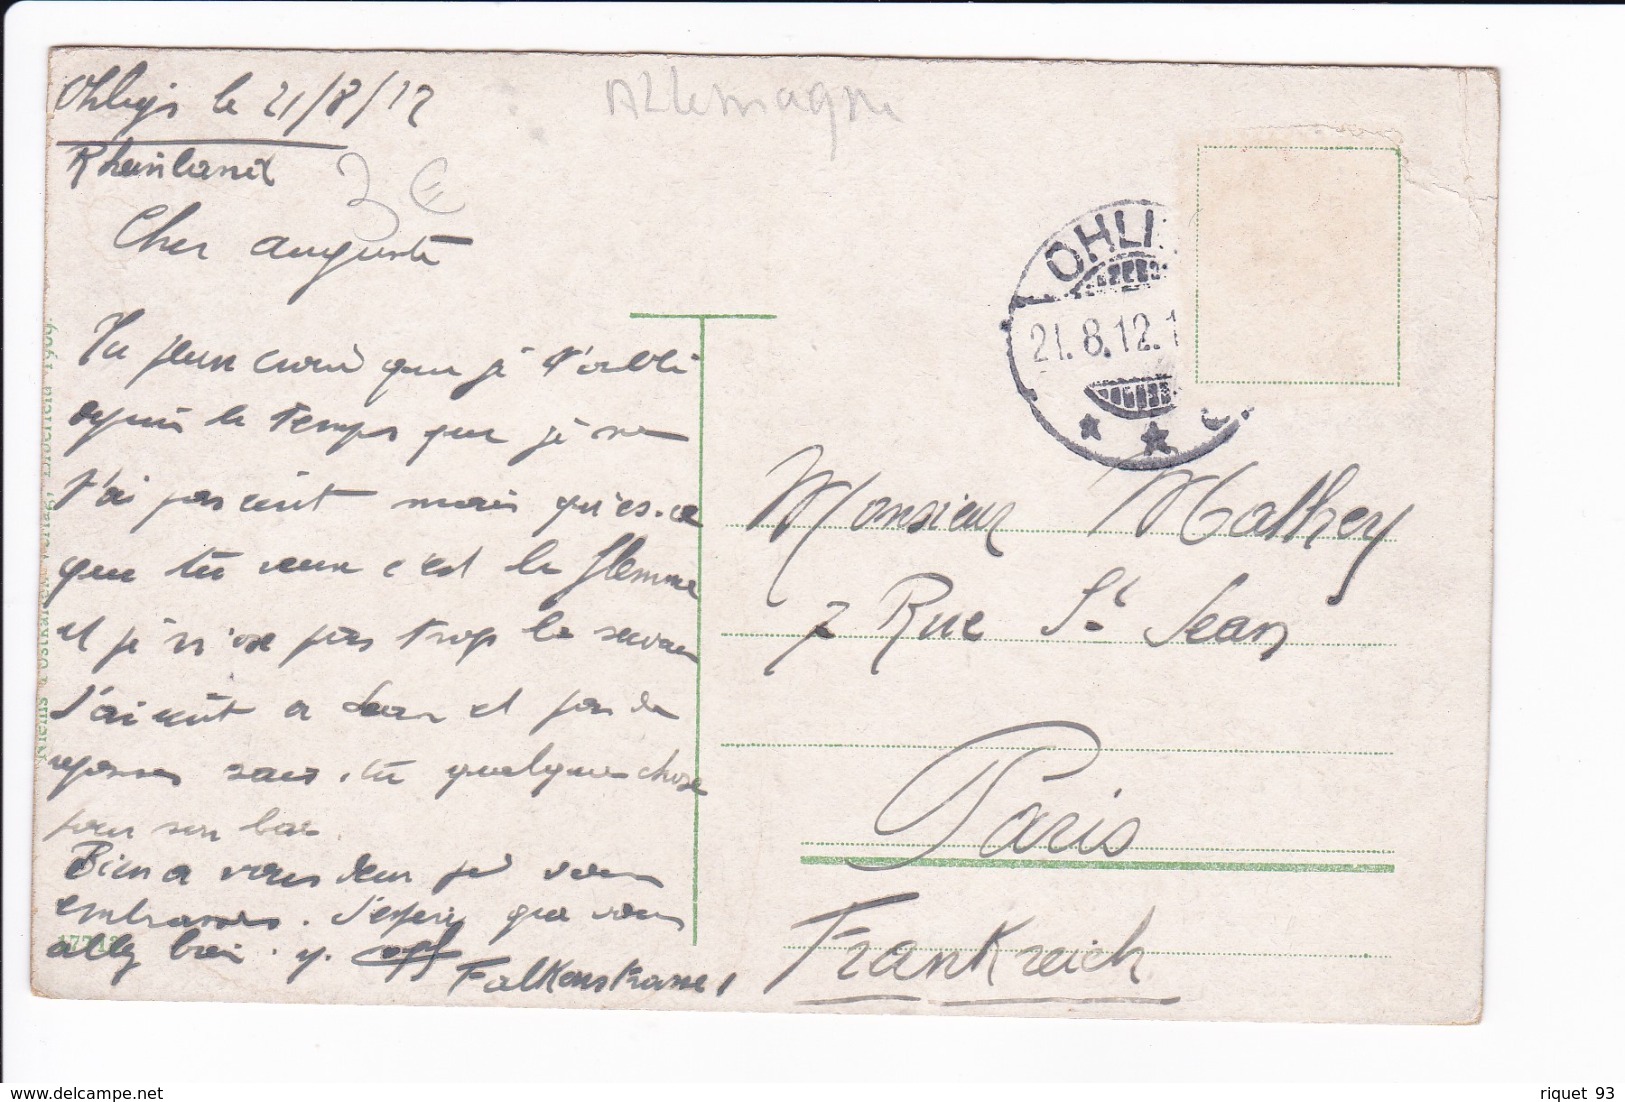 Ohligs le 21/8/12
Allemagne
Rheinland
3 €
Cher auguste
Tu peux croire que je t'oubli
depuis le temps que je ne
t'ai pas ecrit mais qu'es-ce
que tu veux c'est la flemme
et je n'ose pas trop le
J'ai ecrit a Jean et pas de
reponse sais-tu quelque chose
pour son bac.
Bien a vous deux je vous
embrasse. J'espere que vous
allez bien. y.
Falkenstrasse 1
Niems Postkarten Verlag, Elberfeld 1909.
17712
OHLI
21.8.12.1
Monsieur Mathey
7 Rue St Jean
Paris
Frankreich
riquet 93